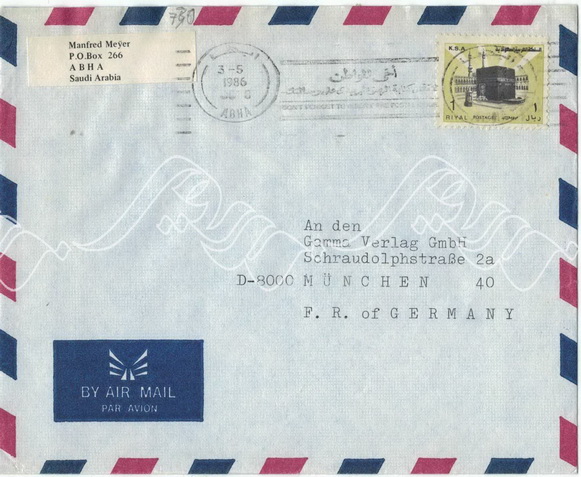 Manfred Meyer
P.O.Box 266
A B H A
Saudi Arabia
3-5
1986
ABHA
K.S.A.
1
١
RIYAL
POSTAGE
ريال
An den
Gamma Verlag GmbH
Schraudolphstraße 2a
D-8000 MÜNCHEN 40
F.R. of GERMANY
BY AIR MAIL
PAR AVION